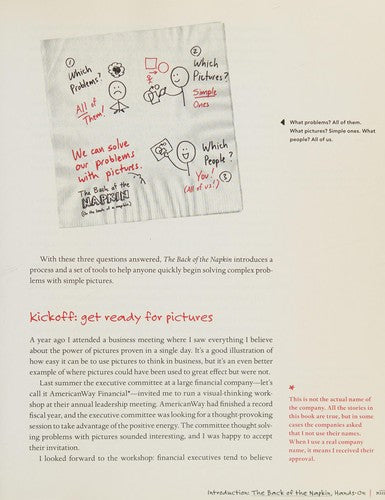 1
Which
Problems?
All of
Them!
2
Which
Pictures?
Simple
Ones
We can solve
our problems
with pictures.
The Back of the
NAPKIN
(On the back of a napkin)
Which
People?
You!
(All of us!) 3
What problems? All of them.
What pictures? Simple ones. What
people? All of us.
With these three questions answered, The Back of the Napkin introduces a
process and a set of tools to help anyone quickly begin solving complex prob-
lems with simple pictures.
kickoff: get ready for pictures
A year ago I attended a business meeting where I saw everything I believe
about the power of pictures proven in a single day. It's a good illustration of
how easy it can be to use pictures to think in business, but it's an even better
example of where pictures could have been used to great effect but were not.
Last summer the executive committee at a large financial company—let's
call it AmericanWay Financial*—invited me to run a visual-thinking work-
shop at their annual leadership meeting. AmericanWay had finished a record
fiscal year, and the executive committee was looking for a thought-provoking
session to take advantage of the positive energy. The committee thought solv-
ing problems with pictures sounded interesting, and I was happy to accept
their invitation.
I looked forward to the workshop: financial executives tend to believe
*
This is not the actual name of
the company. All the stories in
this book are true, but in some
cases the companies asked
that I not use their names.
When I use a real company
name, it means I received their
approval.
Introduction: The Back of the Napkin, Hands-On | xiii